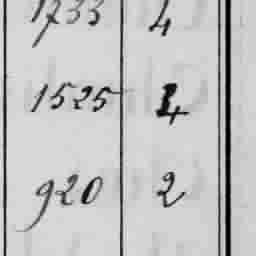 1733 4
1525 4
920 2